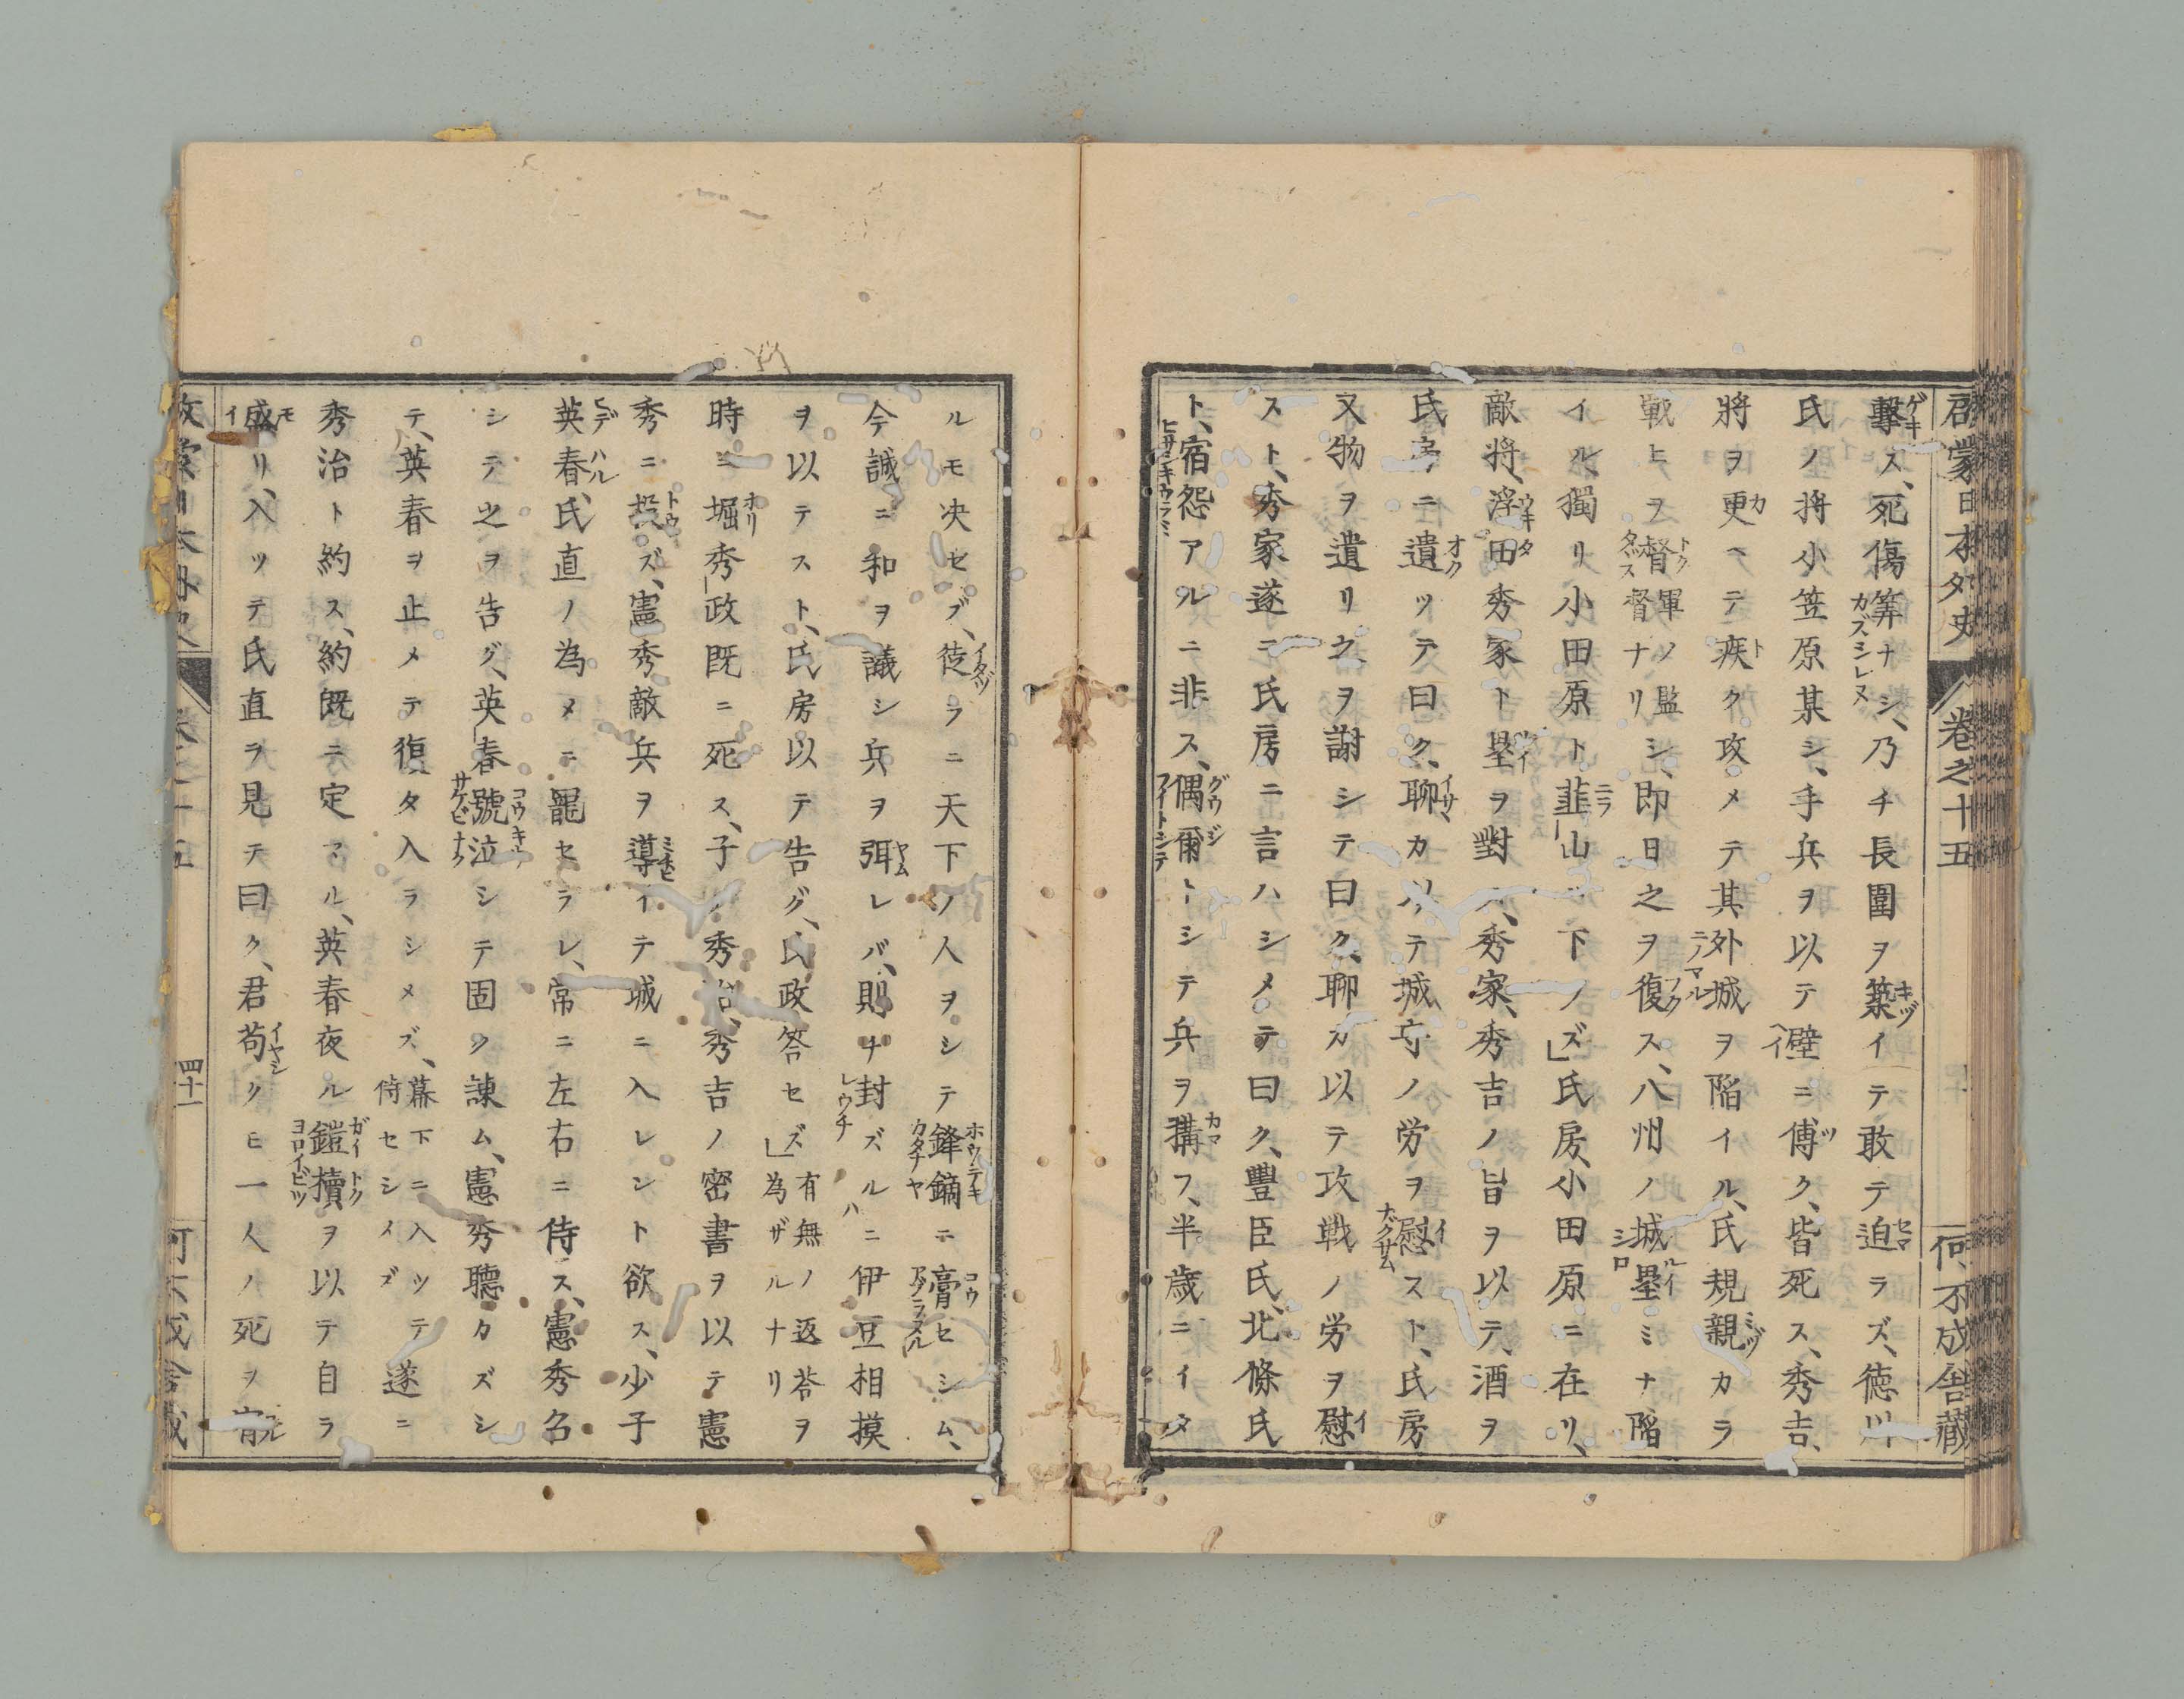 啓蒙日本外史 卷之十五 何不成舎藏
撃ス、死傷筭ナシ、乃チ長圍ヲ築イテ敢テ迫ラズ、徳川
氏ノ将小笠原某シ、手兵ヲ以テ壁ニ傅ク、皆死ス、秀吉、
將ヲ更ヘテ疾ク攻メテ其外城ヲ陥イル、氏規親カラ
戰ヒヲ督軍ノ監督ナリシ、即日之ヲ復ス、八州ノ城塁ミナ陥
イル、獨リ小田原ト韮山ノ下ノズ」氏房、小田原ニ在リ、
敵將、浮田秀家ト塁ヲ對ス、秀家、秀吉ノ旨ヲ以テ、酒ヲ
氏房ニ遺ツテ曰ク、聊カ以テ城守ノ労ヲ慰スト、氏房
又物ヲ遺リ之ヲ謝シテ曰ク、聊カ以テ攻戰ノ労ヲ慰
スト、秀家遂ニ氏房ニ言ハシメテ曰ク、豐臣氏、北條氏
ト、宿怨アルニ非ス、偶爾トシテ兵ヲ搆フ、半歳ニイタ
ルモ决セズ、徒ラニ天下ノ人ヲシテ鋒鏑ニ膏セシム、
今誠ニ和ヲ議シ兵ヲ弭レバ、則チ封ズルニ伊豆相摸
ヲ以テスト、氏房以テ告グ、氏政答セズ」有無ノ返荅ヲ為ザルナリ
時ニ堀秀政既ニ死ス、子ノ秀治、秀吉ノ密書ヲ以テ憲
秀ニ投ズ、憲秀敵兵ヲ導イテ城ニ入レント欲ス、少子
英春、氏直ノ為メニ寵セラレ、常ニ左右ニ侍ス、憲秀名
シテ之ヲ告グ、英春號泣シテ固ク諌ム、憲秀聽カズシ
テ、英春ヲ止メテ復タ入ラシメズ、幕下ニ入ツテ侍セシメズ遂ニ
秀治ト約ス、約既ニ定マル、英春夜ル鎧櫝ヲ以テ自ラ
盛リ、入ツテ氏直ヲ見テ曰ク、君苟クモ一人ノ死ヲ
四十一